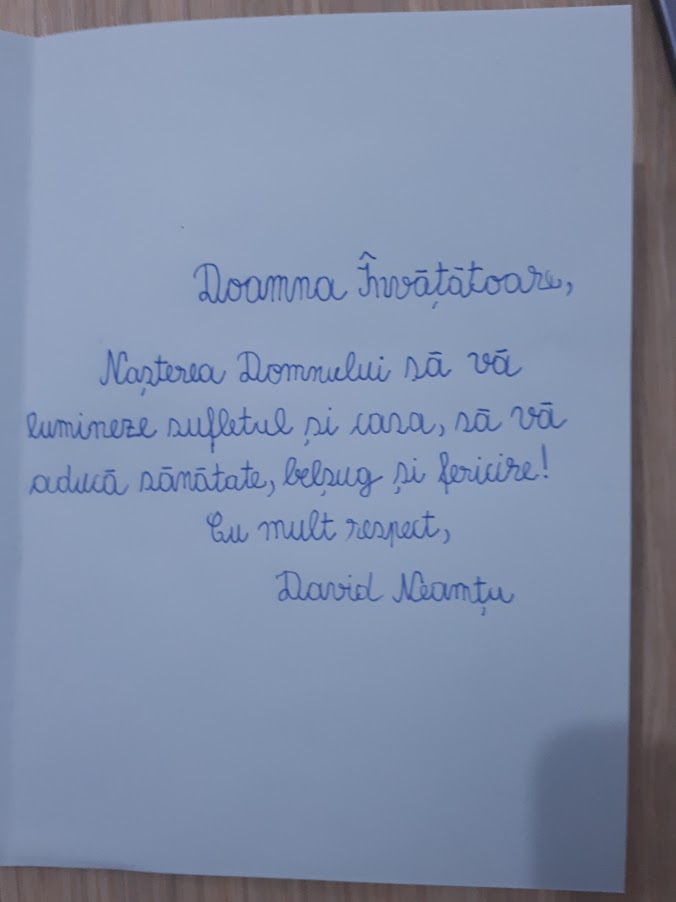 Doamna Învățătoare,
Nașterea Domnului să vă
lumineze sufletul și casa, să vă
aducă sănătate, belșug și fericire!
Cu mult respect,
David Neamțu